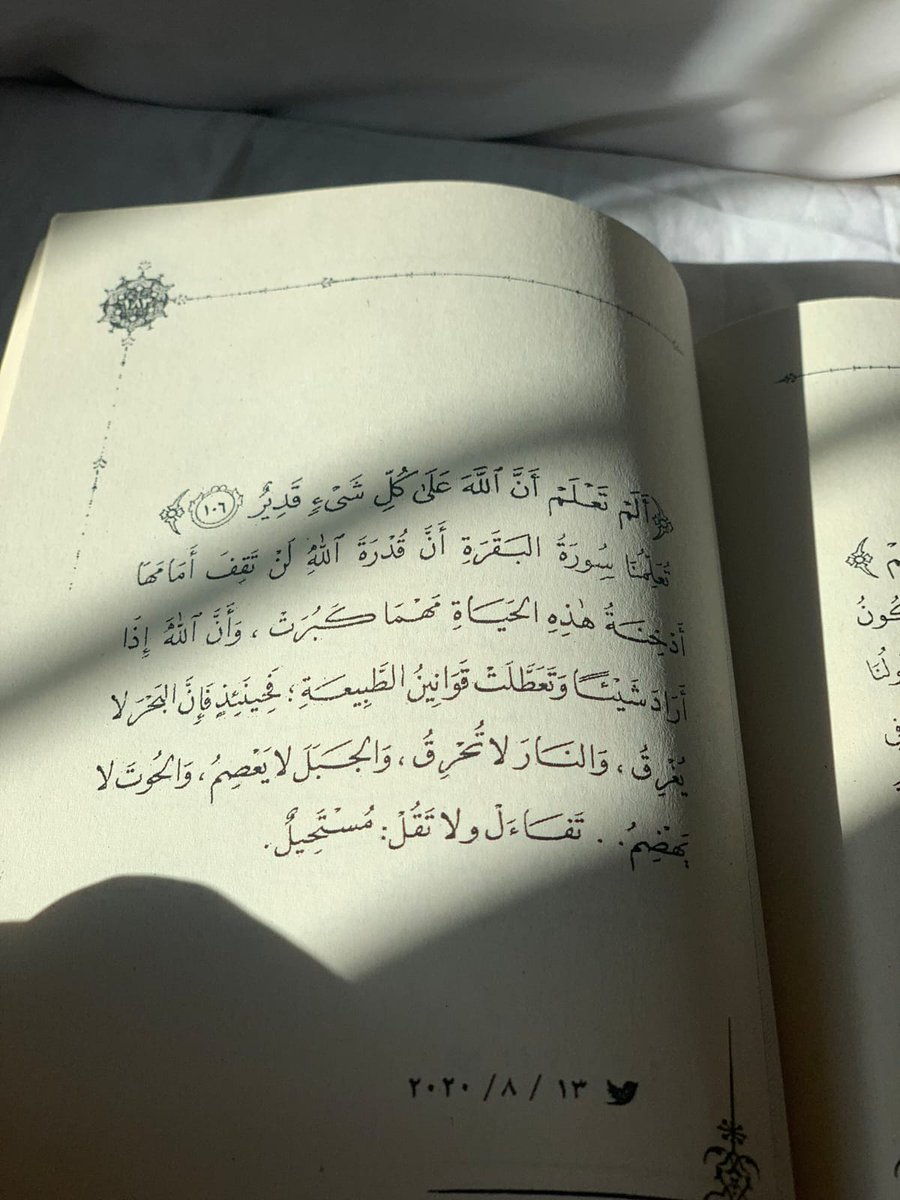 ﴿أَلَمْ تَعْلَمْ أَنَّ ٱللَّهَ عَلَىٰ كُلِّ شَىْءٍ قَدِيرٌ ١٠٦﴾
تُعَلِّمُنَا سُورَةُ البَقَرَةِ أَنَّ قُدْرَةَ ٱللَّهِ لَنْ تَقِفَ أَمَامَهَا
أَدْخِنَةُ هٰذِهِ الحَيَاةِ مَهْمَا كَبُرَتْ، وَأَنَّ ٱللَّهَ إِذَا
أَرَادَ شَيْئًا وَتَعَطَّلَتْ قَوَانِينُ الطَّبِيعَةِ؛ فَحِينَئِذٍ فَإِنَّ البَحْرَ لا
يُغْرِقُ، وَالنَارَ لا تُحْرِقُ، وَالجَبَلَ لا يَعْصِمُ، وَالحُوتَ لا
يَهْضِمُ.. تَفَاءَلْ ولا تَقُلْ: مُسْتَحِيلٌ.
١٣ / ٨ / ٢٠٢٠
مْ ﴾
كُونُ
ولُنَا
فِي